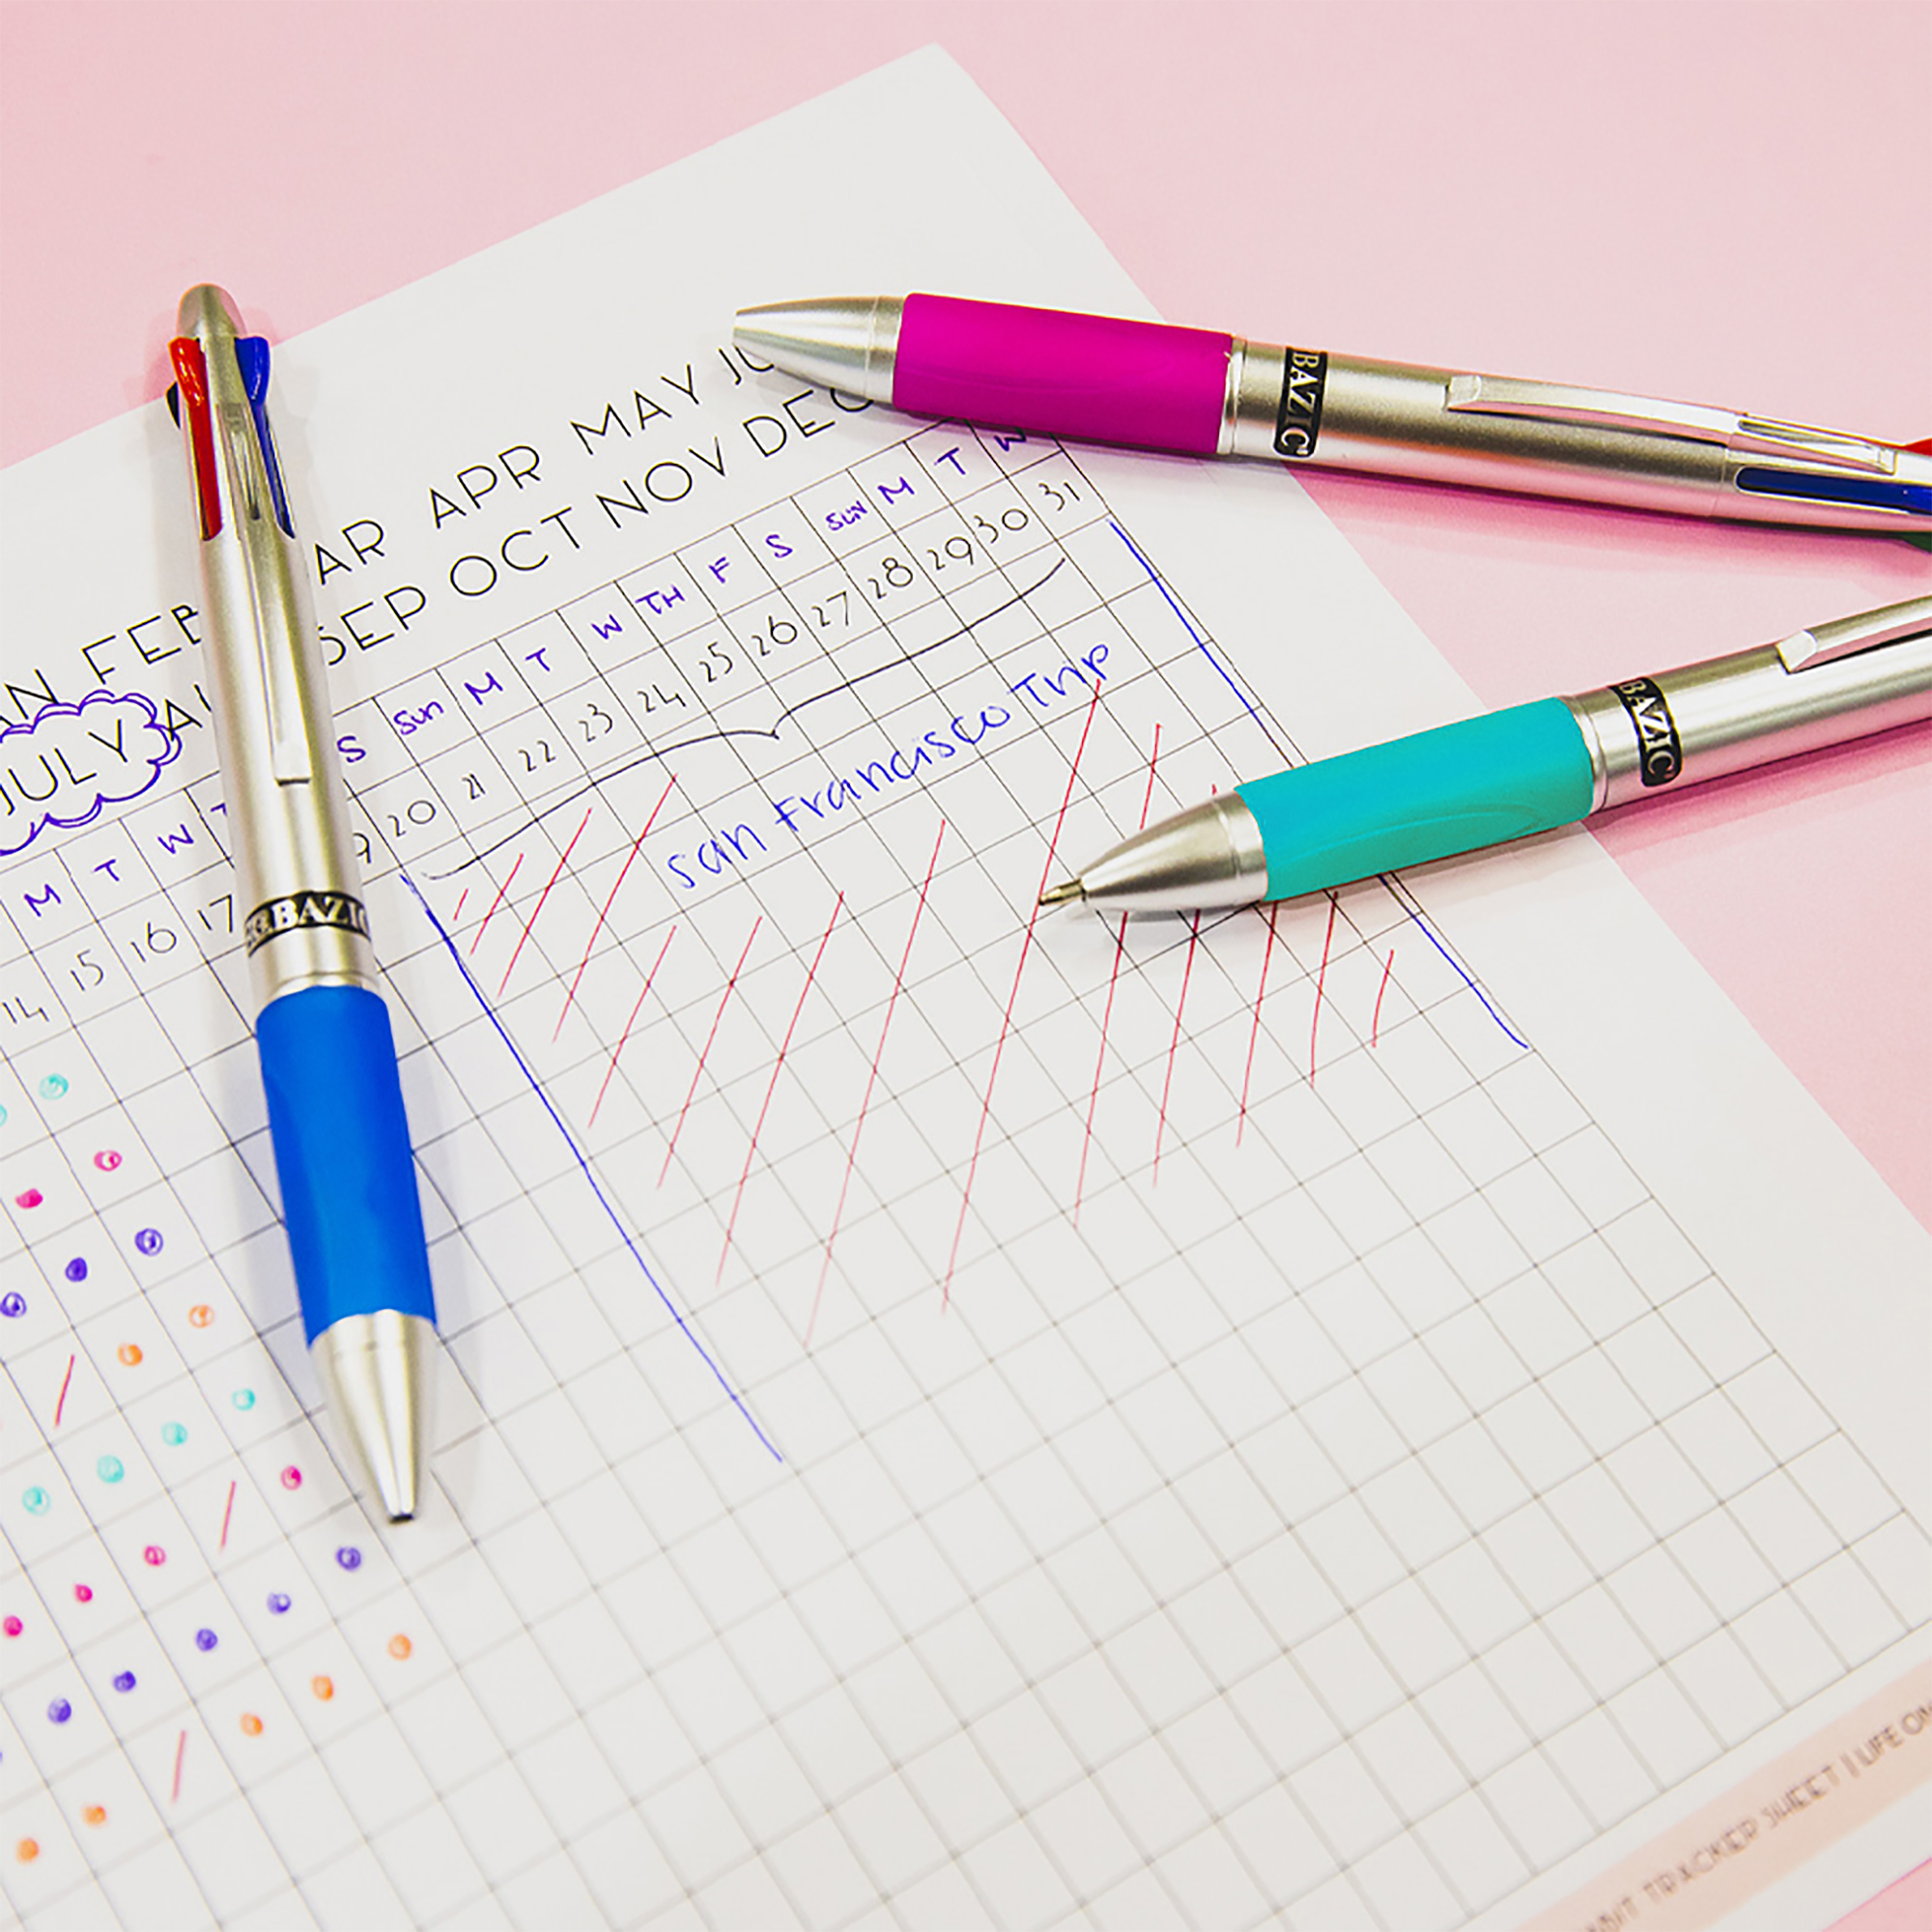 FEB AR APR MAY JU
JULY SEP OCT NOV DEC
M T W S Sun M T W TH F S SUN M T W
14 15 16 17 9 20 21 22 23 24 25 26 27 28 29 30 31
San Francisco Trip
BAZIC
BAZIC
BAZIC
TRACKER SHEET | LIFE ON